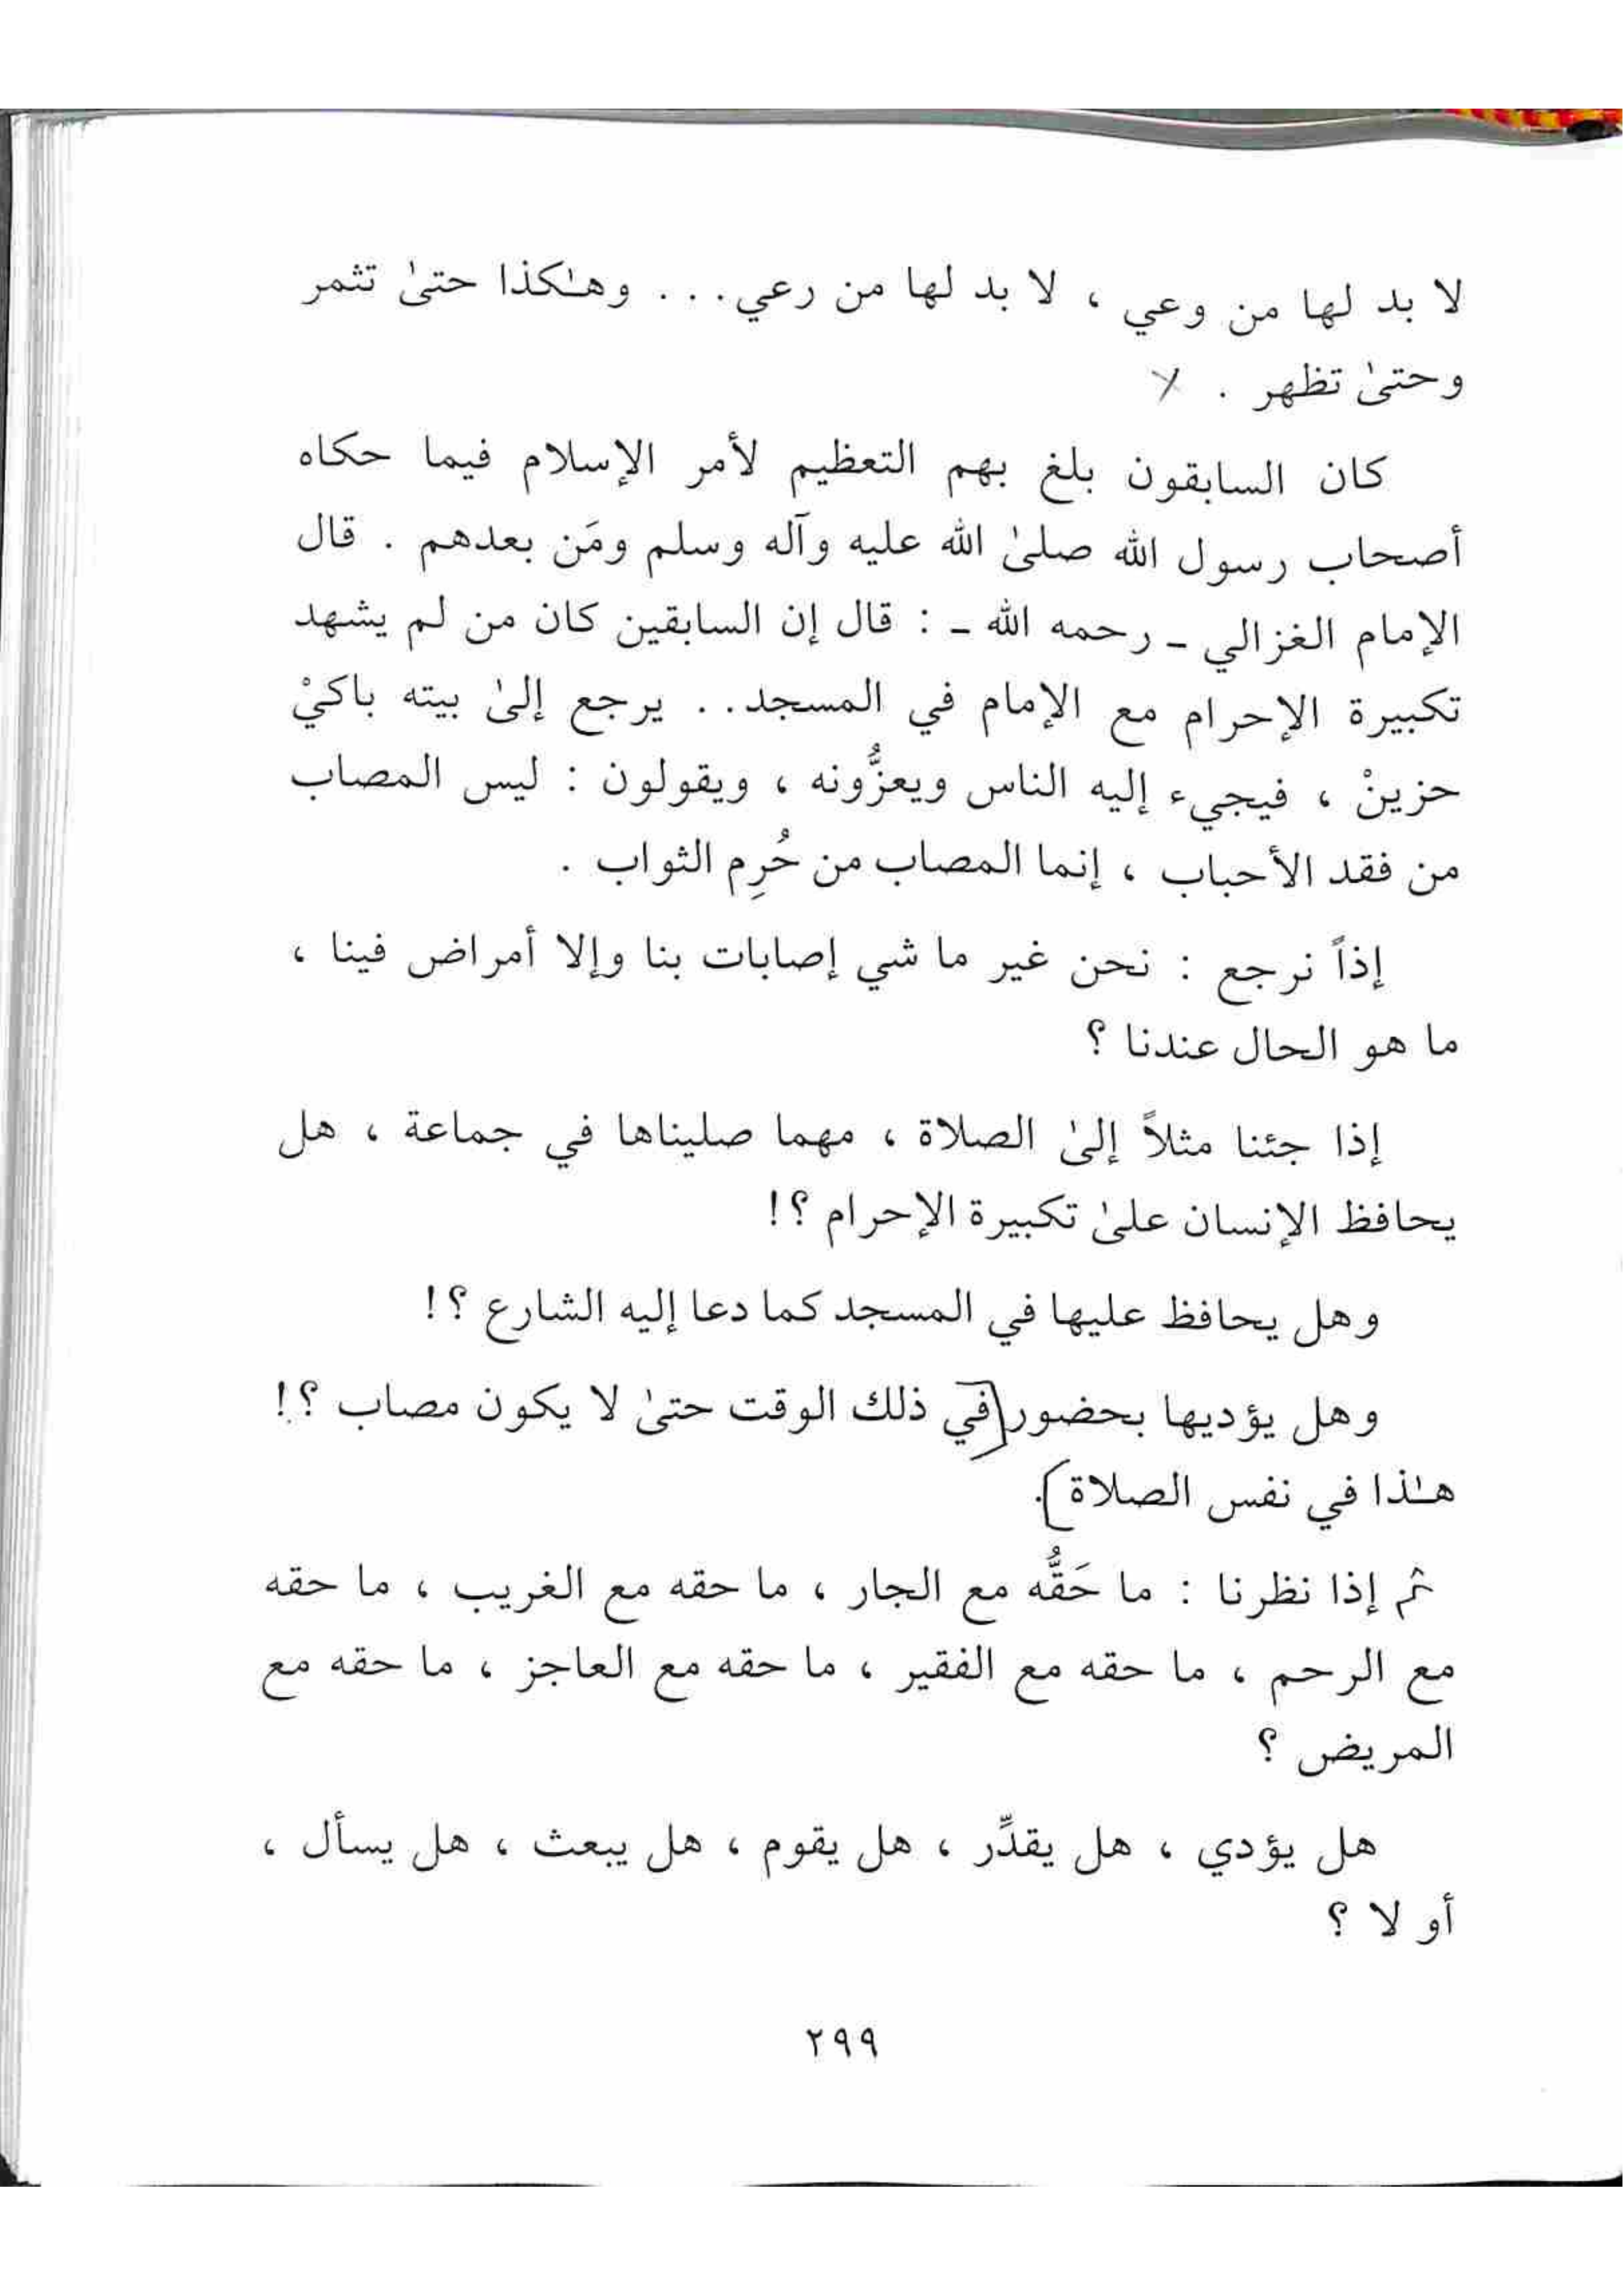 لا بد لها من وعي ، لا بد لها من رعي... وهـٰكذا حتىٰ تثمر
وحتىٰ تظهر .
كان السابقون بلغ بهم التعظيم لأمر الإسلام فيما حكاه
أصحاب رسول الله صلىٰ الله عليه وآله وسلم ومَن بعدهم . قال
الإمام الغزالي ـ رحمه الله ـ : قال إن السابقين كان من لم يشهد
تكبيرة الإحرام مع الإمام في المسجد.. يرجع إلىٰ بيته باكيْ
حزينْ ، فيجيء إليه الناس ويعزُّونه ، ويقولون : ليس المصاب
من فقد الأحباب ، إنما المصاب من حُرِم الثواب .
إذاً نرجع : نحن غير ما شي إصابات بنا وإلا أمراض فينا ،
ما هو الحال عندنا ؟
إذا جئنا مثلاً إلىٰ الصلاة ، مهما صليناها في جماعة ، هل
يحافظ الإنسان علىٰ تكبيرة الإحرام ؟!
وهل يحافظ عليها في المسجد كما دعا إليه الشارع ؟!
وهل يؤديها بحضور (في ذلك الوقت حتىٰ لا يكون مصاب ؟!
هـٰذا في نفس الصلاة).
ثم إذا نظرنا : ما حَقُّه مع الجار ، ما حقه مع الغريب ، ما حقه
مع الرحم ، ما حقه مع الفقير ، ما حقه مع العاجز ، ما حقه مع
المريض ؟
هل يؤدي ، هل يقدِّر ، هل يقوم ، هل يبعث ، هل يسأل ،
أو لا ؟
٢٩٩